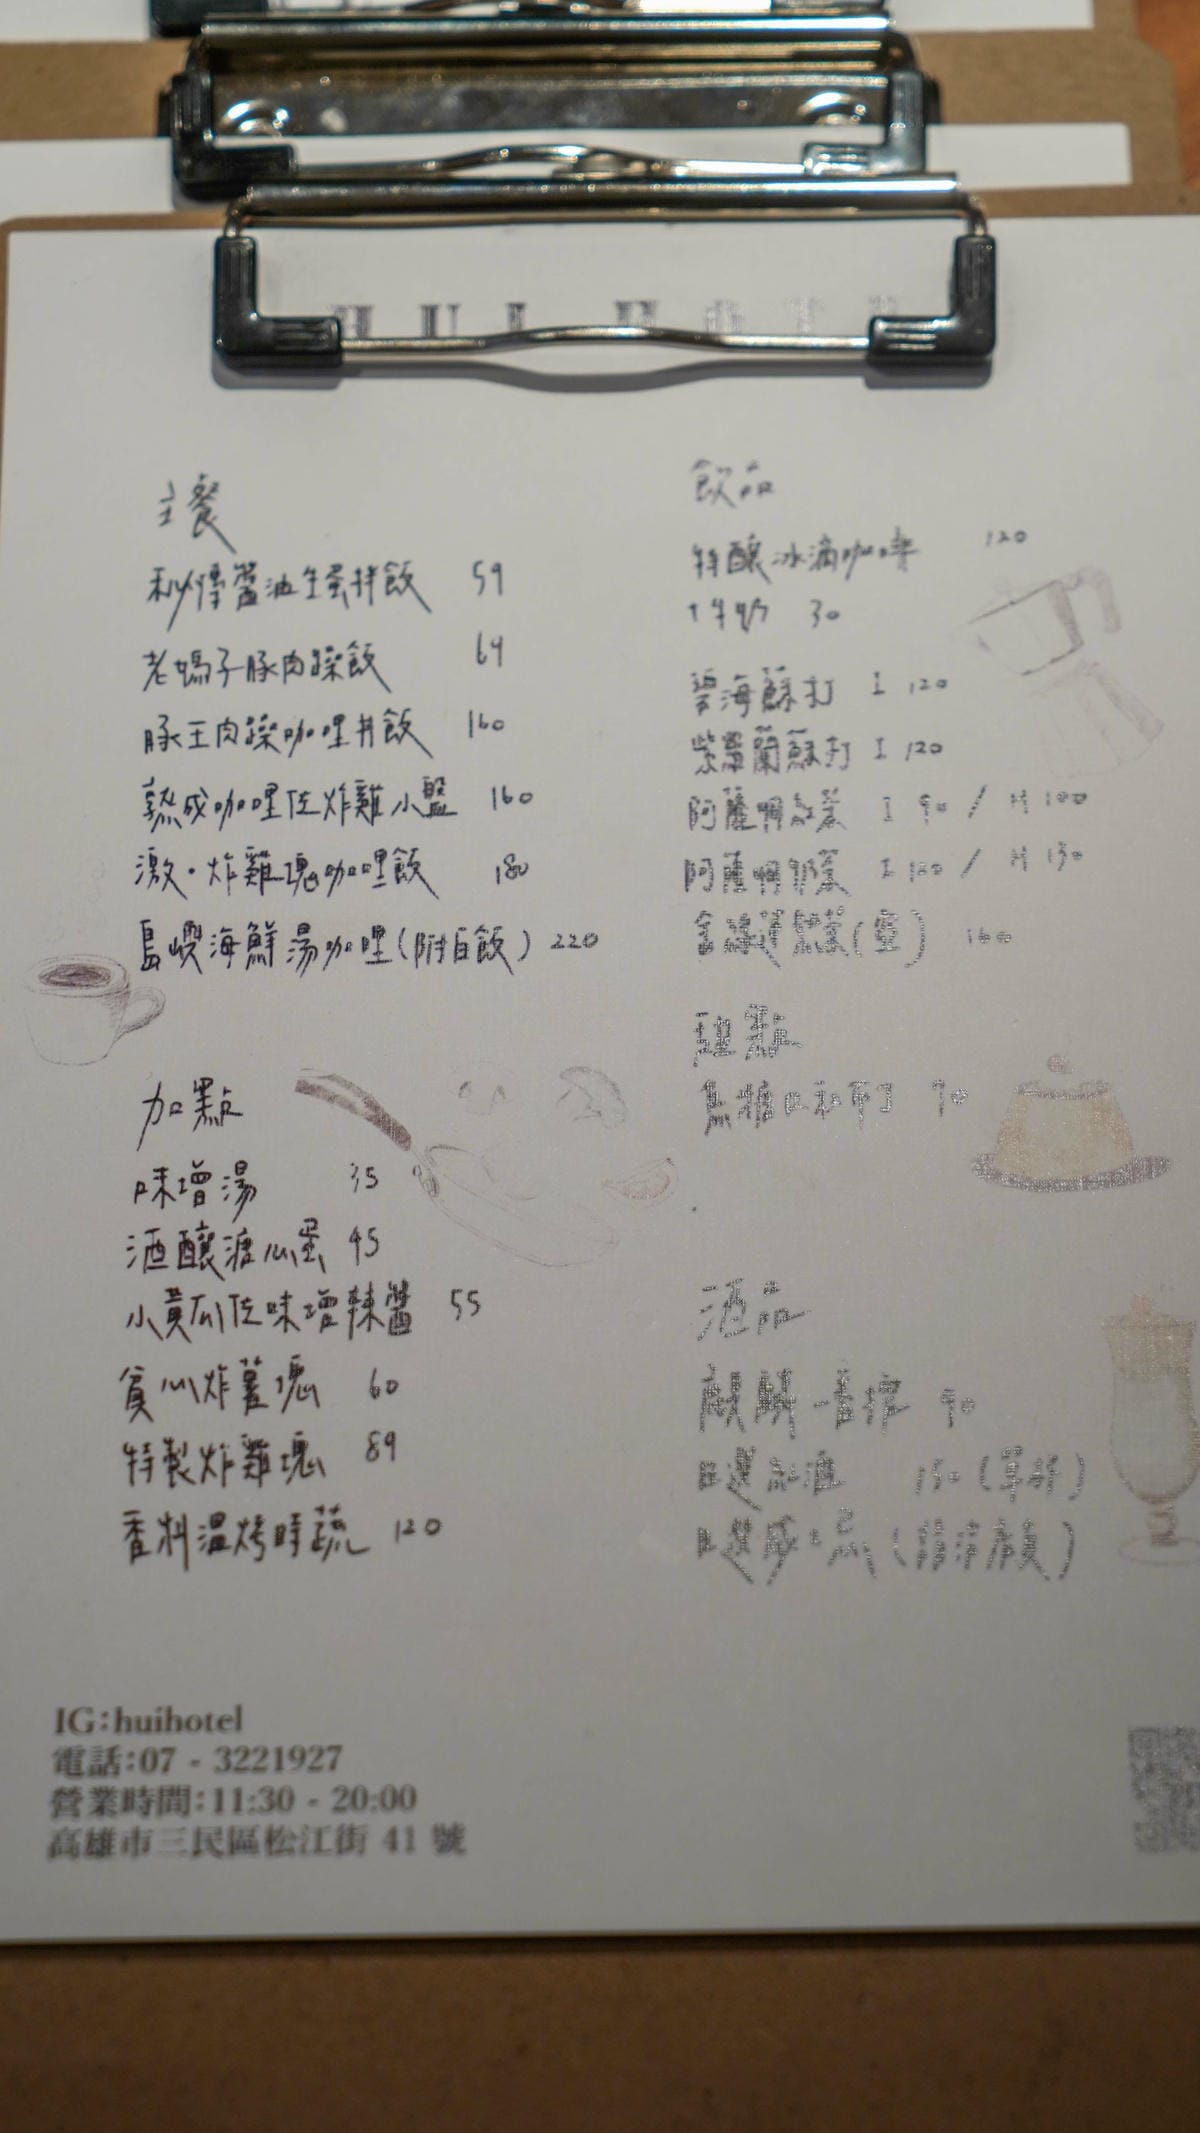 主餐
醬油生蛋拌飯 59
老媽子豚肉躁飯 69
豚王肉躁咖哩丼飯 160
熟成咖哩佐炸雞小盤 160
激·炸雞塊咖哩飯 180
島嶼海鮮湯咖哩(附白飯) 220
加點
味增湯 35
酒釀溏心蛋 45
小黃瓜佐味增辣醬 55
貪心炸薯塊 60
特製炸雞塊 89
香料溫烤時蔬 120
IG:huihotel
電話:07 - 3221927
營業時間:11:30 - 20:00
高雄市三民區松江街 41 號
飲品
特釀冰滴咖啡 120
↑牛奶 30
碧海蘇打 I 120
紫羅蘭蘇打 I 120
阿薩姆紅茶 I 90 / H 100
阿薩姆奶茶 I 120 / H 130
(壺) 160
甜點
焦糖布丁 90
酒品
麒麟一番搾 90
嚴選紅酒 150 (單杯)